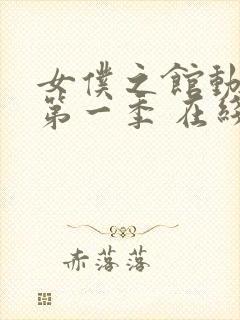 女僕之館動
第一季 在線
赤落落